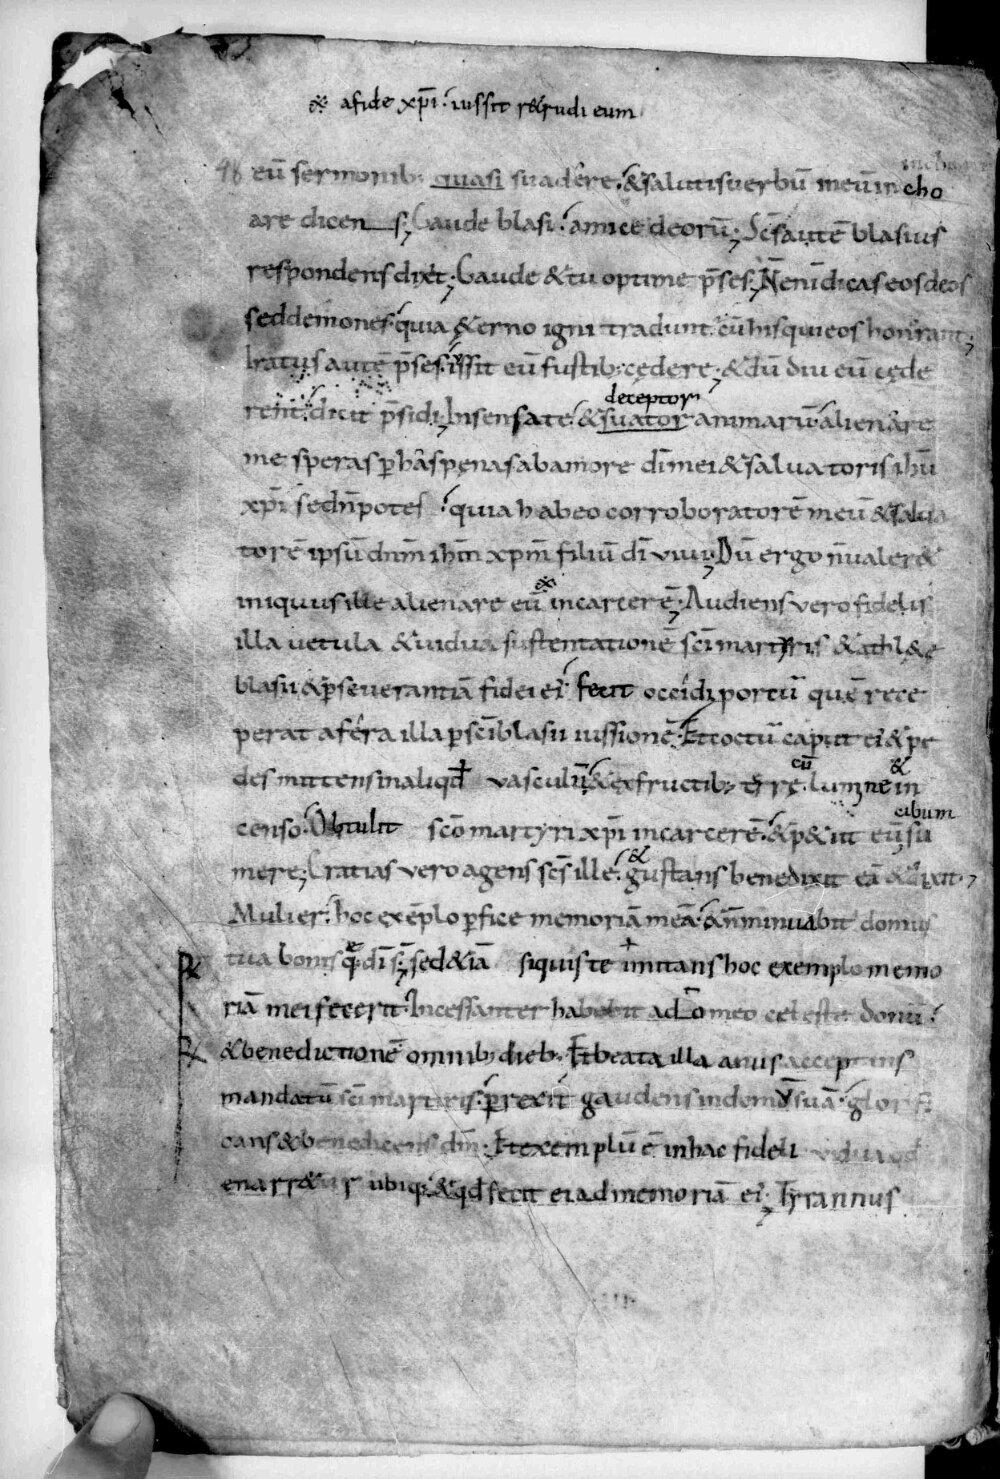 & afide xp̄i · iussit r&rudi eum
eū sermonib; quasi suadere · & salutis uerbū meū incho
are dicens; Gaude blasi · amice deorū; Sc̄s autē blasius
respondens dixit; Gaude & tu optime p̄ses; N̄ enī dicas eos deos
sed demones · quia & erno igni tradunt cū his qui eos honorant;
Iratus autē p̄ses · iussit eū fustib; cędere; & dū diu eū cęde
deceptor
rent · dicit p̄sidi; Insensate · & suator animarū · alienare
me speras p̄ has penas ab amore dī mei & saluatoris ihū
xp̄i sed n̄ potes · quia habeo corroboratorē meū & salua
torē ipsū dn̄m ihm̄ xpm̄ filiū dī uiui; Dū ergo n̄ ualer&
iniquus ille alienare eū in carcerē · Audiens uero fidelis
illa uetula & uidua sustentationē sc̄i martyris & athl&ę
blasii & p̄seuerantiā fidei ei · fecit occidi porcū quē rece
perat a fera illa p̄ sc̄i blasii iussionē · Et coctū caput ei & pe
cū &
des mittens in aliqd̄ uasculū & ex fructib; terrę · lumine in
cibum
censo · Obtulit sc̄o martyri xp̄i in carcerē · & p&iit eū su
&
mere; Gratias uero agens sc̄s ille · gustans benedixit eā & dixit;
Mulier · hoc exēplo p̄fice memoriā meā · & n̄ minuabit domus
tua bonis q̄ dī s̄; sed & iā si quis te imitans hoc exemplo memo
riā mei fecerit · Incessanter habebit a do meo celeste donū ·
& benedictionē omnib; dieb; Et beata illa anus accipiens
mandatū sc̄i martiris · p̄rexit gaudens in domū suā · glorifi
cans & benedicens dm̄ · Et exemplū ē in hac fideli uidua qd̄
enarr&ur ubiq; & qd̄ fecit ei ad memoriā ei; Tyrannus